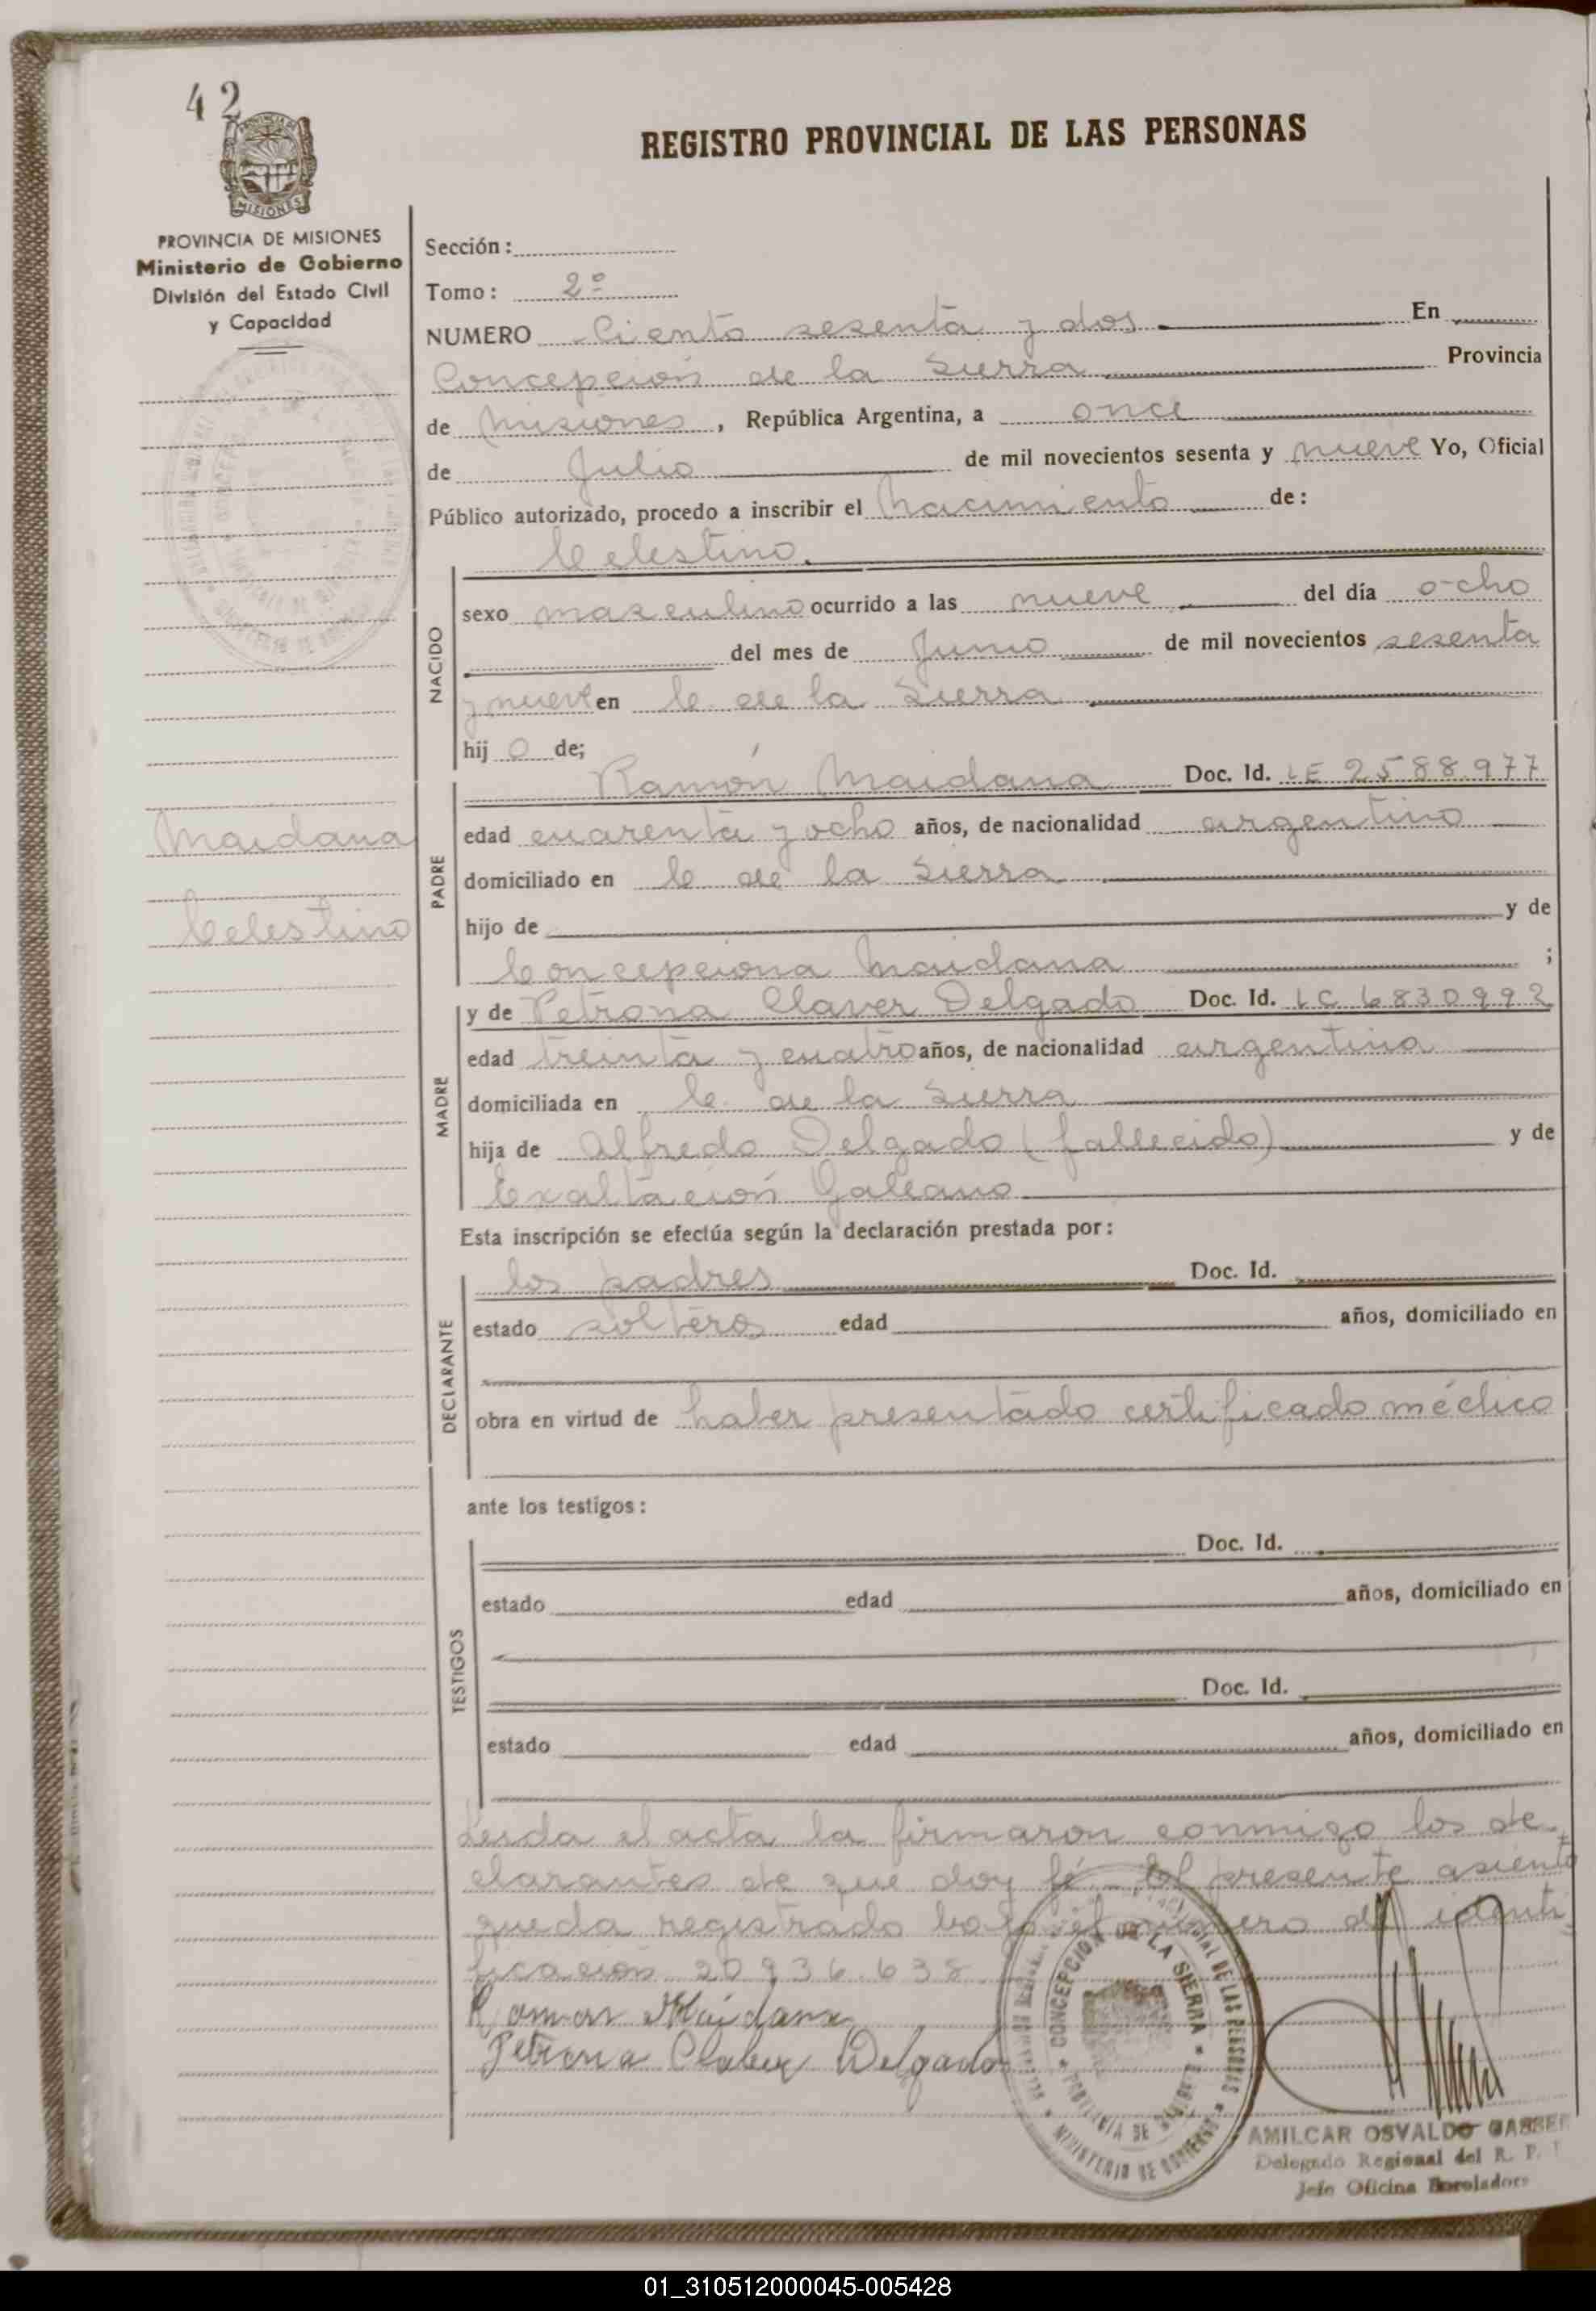 42
REGISTRO PROVINCIAL DE LAS PERSONAS
MISIONES
PROVINCIA DE MISIONES
Ministerio de Gobierno
División del Estado Civil
y Capacidad
Sección:
Tomo: 2º
NUMERO Ciento sesenta y dos En
Concepción de la Sierra Provincia
de Misiones, República Argentina, a once
de Julio de mil novecientos sesenta y nueve Yo, Oficial
Público autorizado, procedo a inscribir el Nacimiento de:
Celestino.
NACIDO
sexo masculino ocurrido a las nueve del día ocho
del mes de Junio de mil novecientos sesenta
y nueve en C. de la Sierra
hij o de;
Ramón Maidana Doc. Id. LE 2588977
Maidana
Celestino
PADRE
edad cuarenta y ocho años, de nacionalidad argentino
domiciliado en C. de la Sierra
hijo de y de
Concepciona Maidana ;
MADRE
y de Petrona Claver Delgado Doc. Id. LC 6830992
edad treinta y cuatro años, de nacionalidad argentina
domiciliada en C. de la Sierra
hija de Alfredo Delgado (fallecido) y de
Exaltación Galeano
Esta inscripción se efectúa según la declaración prestada por:
DECLARANTE
los padres Doc. Id.
estado solteros edad años, domiciliado en
obra en virtud de haber presentado certificado médico
ante los testigos:
TESTIGOS
Doc. Id.
estado edad años, domiciliado en
Doc. Id.
estado edad años, domiciliado en
Leída el acta la firmaron conmigo los de-
clarantes de que doy fé. El presente asiento
queda registrado bajo el número de identi-
ficación 20.936.638.
Ramon Maidana
Petrona Claber Delgado
CONCEPCION DE LA SIERRA
MINISTERIO DE GOBIERNO
AMILCAR OSVALDO
Delegado Regional del R. P.
Jefe Oficina Enroladora
01_310512000045-005428